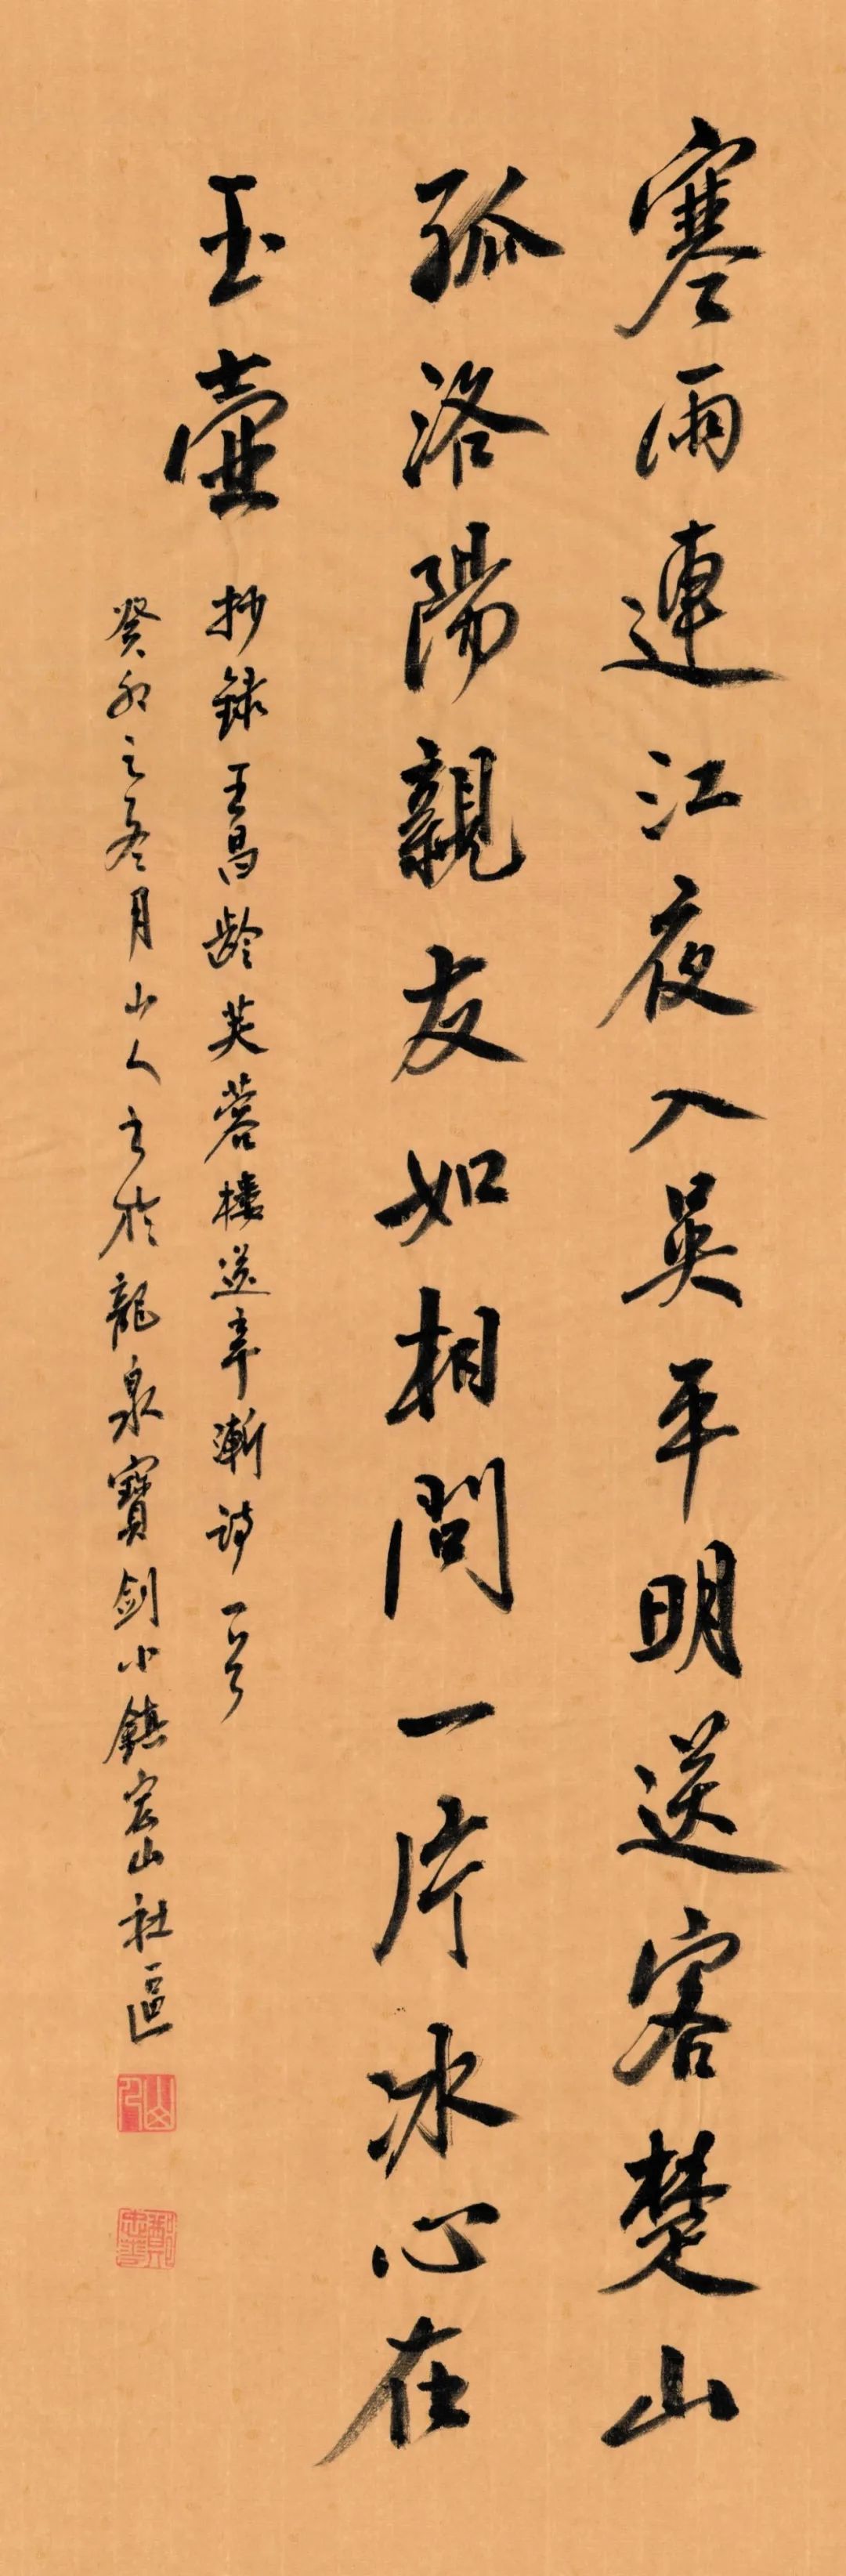 寒雨連江夜入吳平明送客楚山
孤洛陽親友如相問一片冰心在
玉壺
抄録王昌齡芙蓉樓送辛漸詩一首
癸卯之冬月山人書於龍泉寶劍小鎮宏山社區